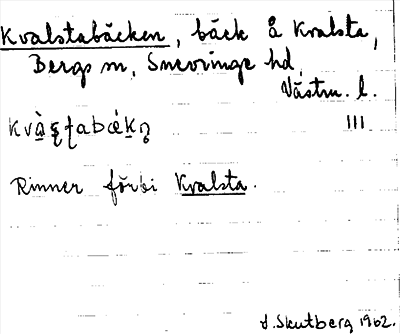 Kvalstabäcken, bäck å Kvalsta,
Bergs sn, Snevringe hd,
Västm. l.
III
Rinner förbi Kvalsta.
J. Skutberg 1962.